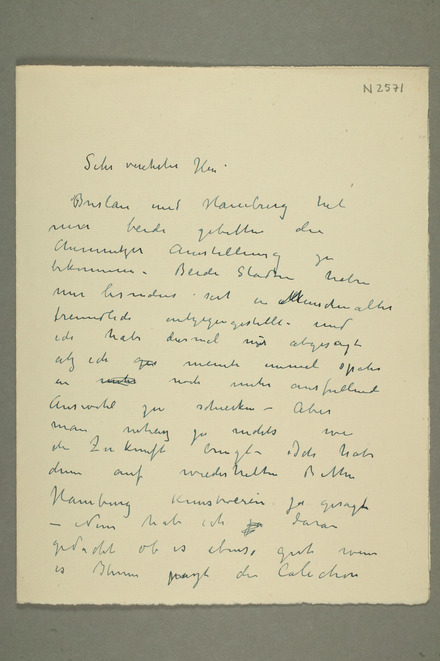 N 2571
Sehr verehrter Herr
Breslau und Hamburg hat
mir beide gebeten die
Chemnitzer Ausstellung zu
bekommen. Beide Städte haben
mir besonders seit
freundlich entgegengestellt und
ich habe diesmal abgesagt
ich meinte einmal später
noch mehr ausfüllend
Auswahl zu schicken – Aber
man zu nichts wie
die Zukunft bringt. Ich habe
denn auf wiederholten Bitten
Hamburg Kunstverein zu gesagt
– Nun habe ich daran
gedacht ob es ebenso gut wenn
es Ihnen passt die Collection